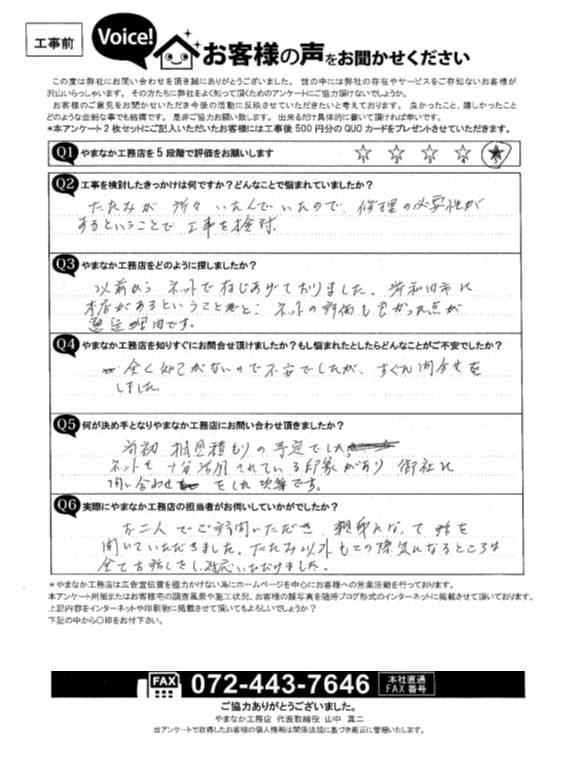 工事前
Voice!
お客様の声をお聞かせください
この度は弊社にお問い合わせを頂き誠にありがとうございました。 世の中には弊社の存在やサービスをご存知ないお客様が
沢山いらっしゃいます。 その方たちに弊社をよく知って頂くためのアンケートにご協力頂けないでしょうか。
お客様のご意見をお聞かせいただき今後の活動に反映させていただきたいと考えております。 良かったこと、嬉しかったこと
どのような些細な事でも結構です。 是非ご協力お願い致します。 出来るだけ具体的に書いて頂ければ幸いです。
*本アンケート2枚セットにご記入いただいたお客様には工事後500円分のQUOカードをプレゼントさせていただきます。
Q1 やまなか工務店を5段階で評価をお願いします
1 2 3 4 5
Q2 工事を検討したきっかけは何ですか?どんなことで悩まれていましたか?
たたみが 所々 いたんでいたので、修理の必要性が
あるということで 工事を検討.
Q3 やまなか工務店をどのように探しましたか?
以前から ネットで ておりました。岸和田市に
本店があるということと、ネットの評価も良かった点が
選定理由です。
Q4 やまなか工務店を知りすぐにお問合せ頂けましたか?もし悩まれたとしたらどんなことがご不安でしたか?
全く 知 がないので不安でしたが、すぐに問合せを
しました。
Q5 何が決め手となりやまなか工務店にお問い合わせ頂きましたか?
当初 相見積もりの予定でした
ネットを 十分活用されている印象があり 御社に
問い合わせ をした次第です。
Q6 実際にやまなか工務店の担当者がお伺いしていかがでしたか?
お二人でご訪問いただき、親身になって 話を
聞いていただきました。たたみ以外もこの際気になるところは
全てお話しをし、対応いただけました。
*やまなか工務店は広告宣伝費を極力かけない為にホームページを中心にお客様への営業活動を行っております。
本アンケート用紙またはお客様宅の調査風景や施工状況、お客様の顔写真を随時ブログ形式のインターネットに掲載させて頂いております。
上記内容をインターネットや印刷物に掲載させて頂いてもよろしいでしょうか?
下記の中から○印をお付下さい。
FAX 072-443-7646 本社直通
FAX番号
ご協力ありがとうございました。
やまなか工務店 代表取締役 山中 真二
当アンケートで取得したお客様の個人情報は関係法規に基づき厳正に管理いたします。